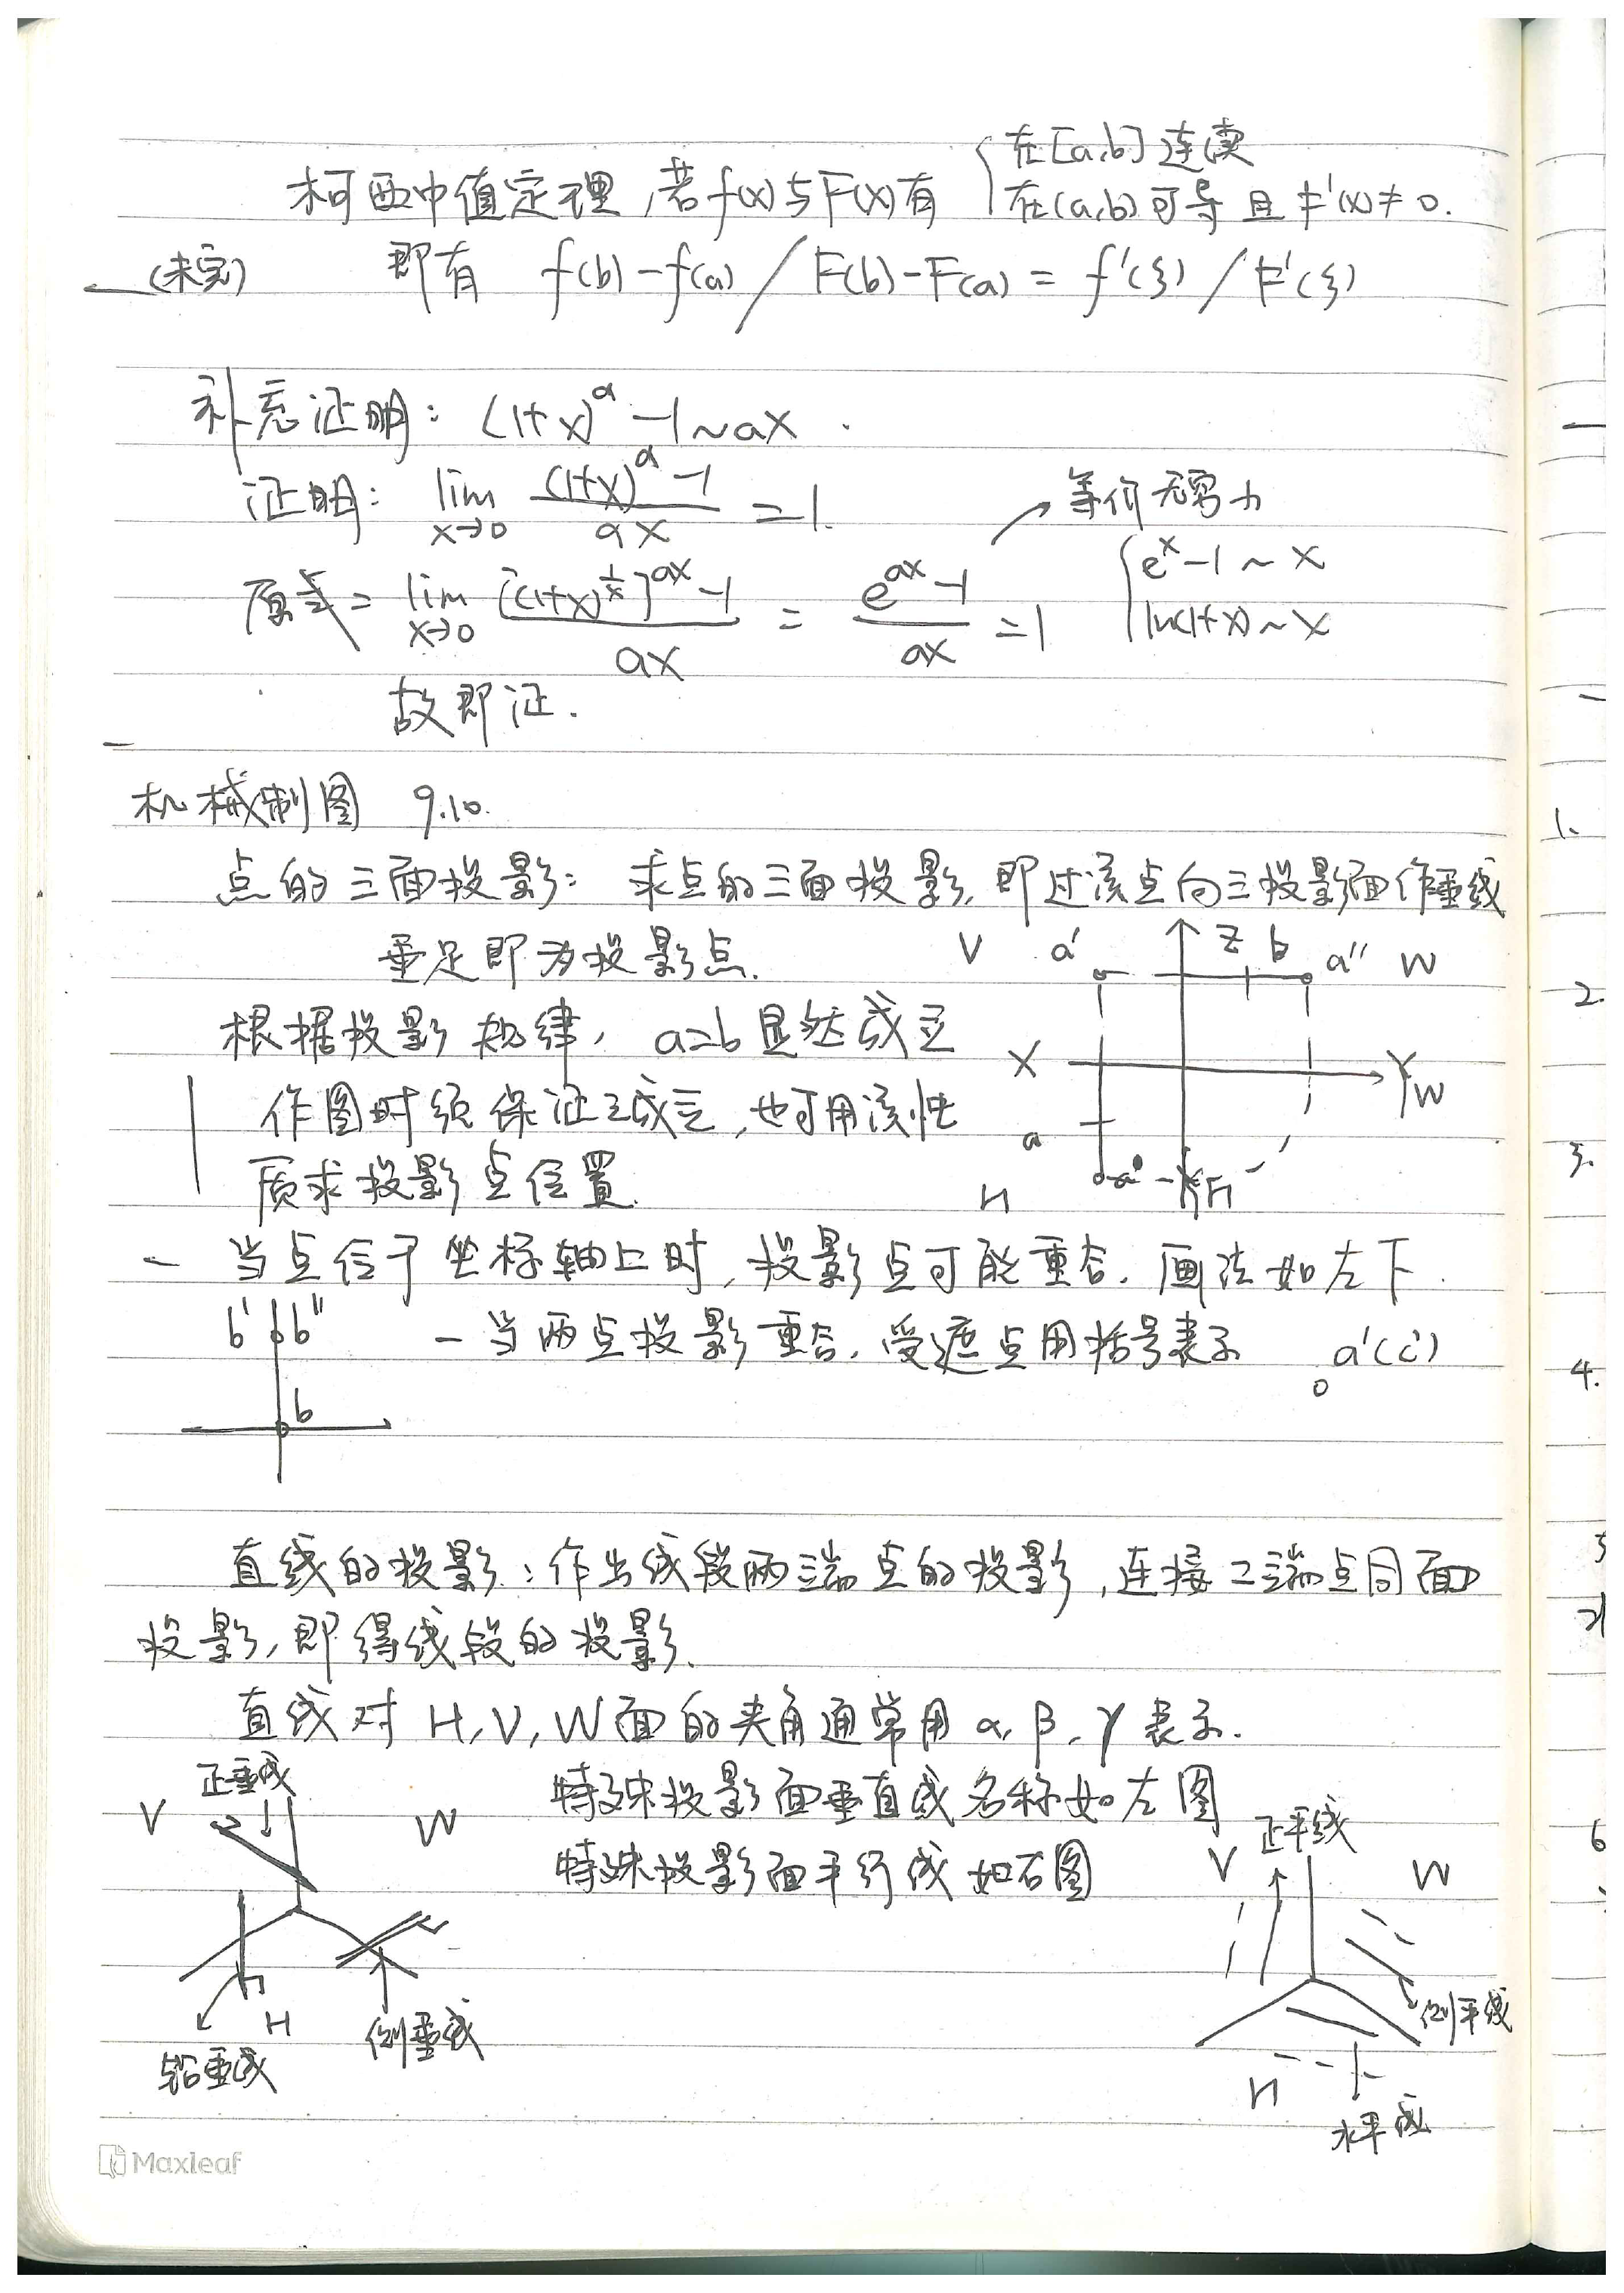 柯西中值定理,若f(x)与F(x)有 { 在[a,b]连续
在(a,b)可导且F'(x)≠0.
(未完) 即有 f(b)-f(a) / F(b)-F(a) = f'(ξ) / F'(ξ)
补充证明: (1+x)^a -1~ax.
证明: lim x→0 (1+x)^a -1 / ax =1.
→等价无穷小
原式= lim x→0 [(1+x)^(1/x)]^ax -1 / ax = e^ax -1 / ax =1
{ e^x -1 ~ x
ln(1+x)~x
故即证.
机械制图 9.10.
点的三面投影: 求点的三面投影,即过该点向三投影面作垂线
垂足即为投影点.
V a' Z b a'' W
根据投影规律, a=b显然成立
X Y W
作图时须保证之成立,也可用该性
a
质求投影点位置.
H a Y H
- 当点位于坐标轴上时,投影点可能重合.画法如左下.
b' b''
- 当两点投影重合,受遮点用括号表示 a'(c')
b
直线的投影:作出线段两端点的投影,连接二端点同面
投影,即得线段的投影.
直线对 H,V,W面的夹角通常用 α,β,γ 表示.
正垂线
特殊投影面垂直线名称如左图
V W
特殊投影面平行线如右图
正平线
V W
H
侧垂线
铅垂线
侧平线
H
水平线
Maxleaf
1.
2.
3.
4.